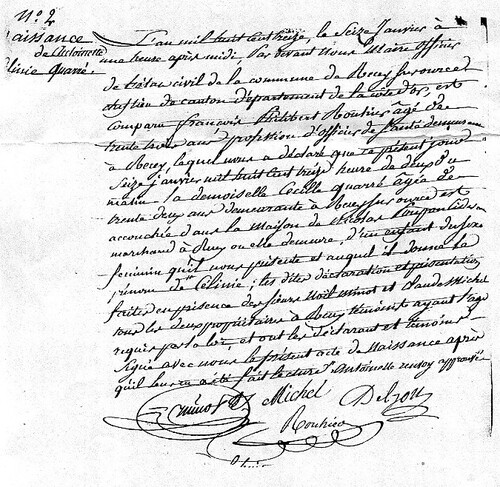 N.° 2
Naissance
de Antoinette
Célinie Quarré.
L'an mil huit cent treize, le Seize Janvier à
une heure après midi, Par devant Nous Maire officier
de l'état civil de la commune de
chef lieu de canton département de la côte d'or, est
comparu françois Philibert Rouhier âgé de
trente trois ans profession d'officier de santé demeurant
à lequel nous a déclaré que ce présent jour
Seize janvier mil huit cent treize heure de deux du
matin la demoiselle Cécille quarré âgée de
trente deux ans demeurante à est
accouchée dans la Maison de Nicolas
marchand à ou elle demeure, d'un enfant du sexe
féminin qu'il nous présente et auquel il donne le
prénom de Célinie; les dites déclaration et présentation
faites en présence des sieurs Noil Minot et Claude Michel
tous les deux propriétaires à témoins ayant l'âge
requis par la loi et ont les déclarant et témoins
Signé avec nous le présent acte de Naissance après
qu'il leur a été fait lecture. Antoinette renvoy approuvé
Minot Michel
Rouhier